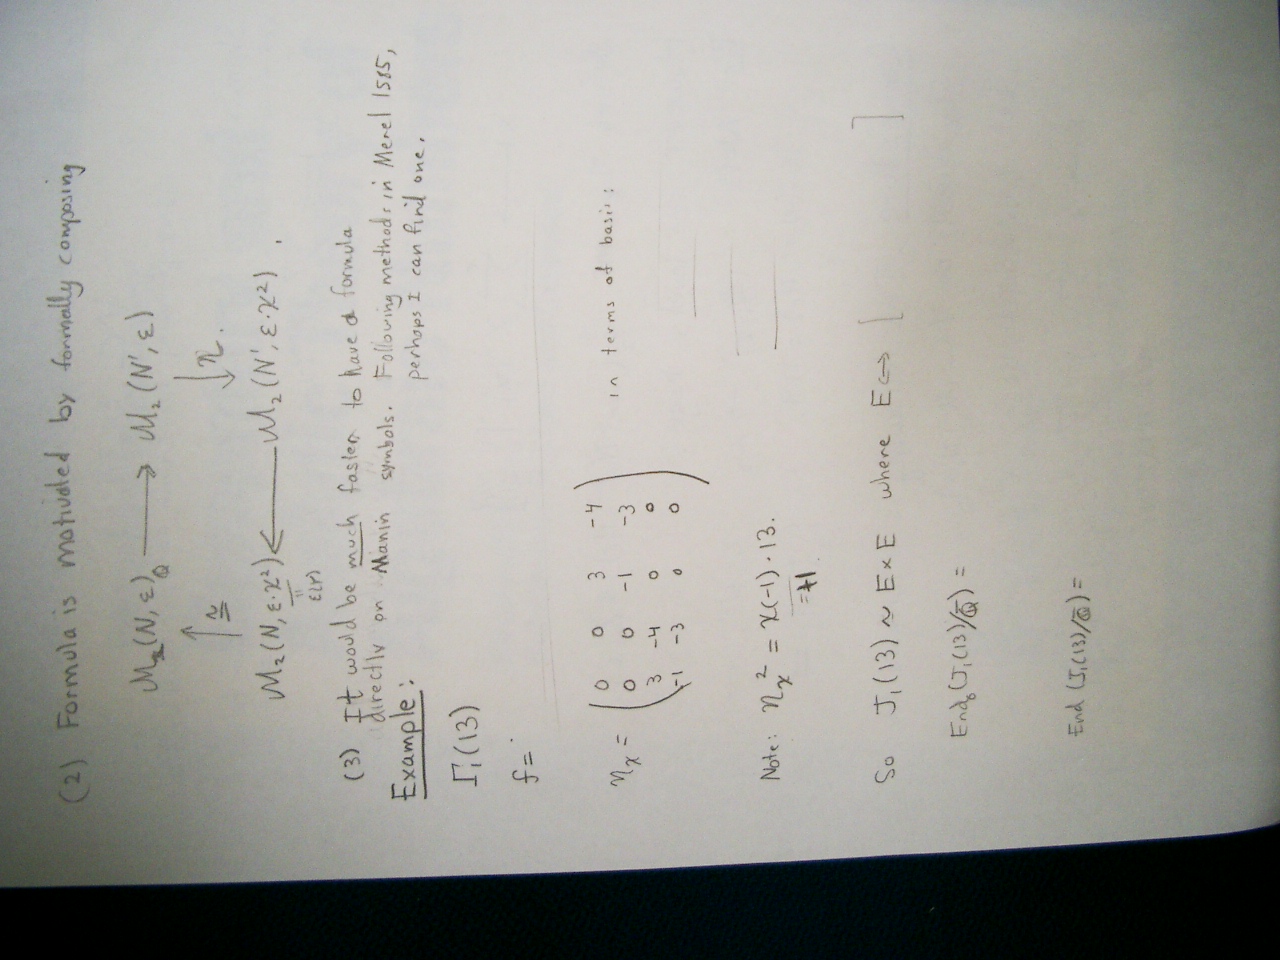 (2) Formula is motivated by formally composing
M₂(N, ε)_Q ⟶ M₂(N', ε)
↑ ≅ ↓ η.
M₂(N, ε·χ²) ⟵ M₂(N', ε·χ²).
=
ε(r)
(3) It would be much faster to have a formula
directly on Manin symbols. Following methods in Merel 1585,
perhaps I can find one.
Example:
Γ₁(13)
f=
η_χ = ( 0 0 3 -4
0 0 -1 -3
3 -4 0 0
-1 -3 0 0 ) in terms of basis:
Note: η_χ² = χ(-1)·13.
=+1.
So J₁(13) ~ E×E where E ↔ [ ]
End₀(J₁(13)/Q̄) =
End(J₁(13)/Q̄) =